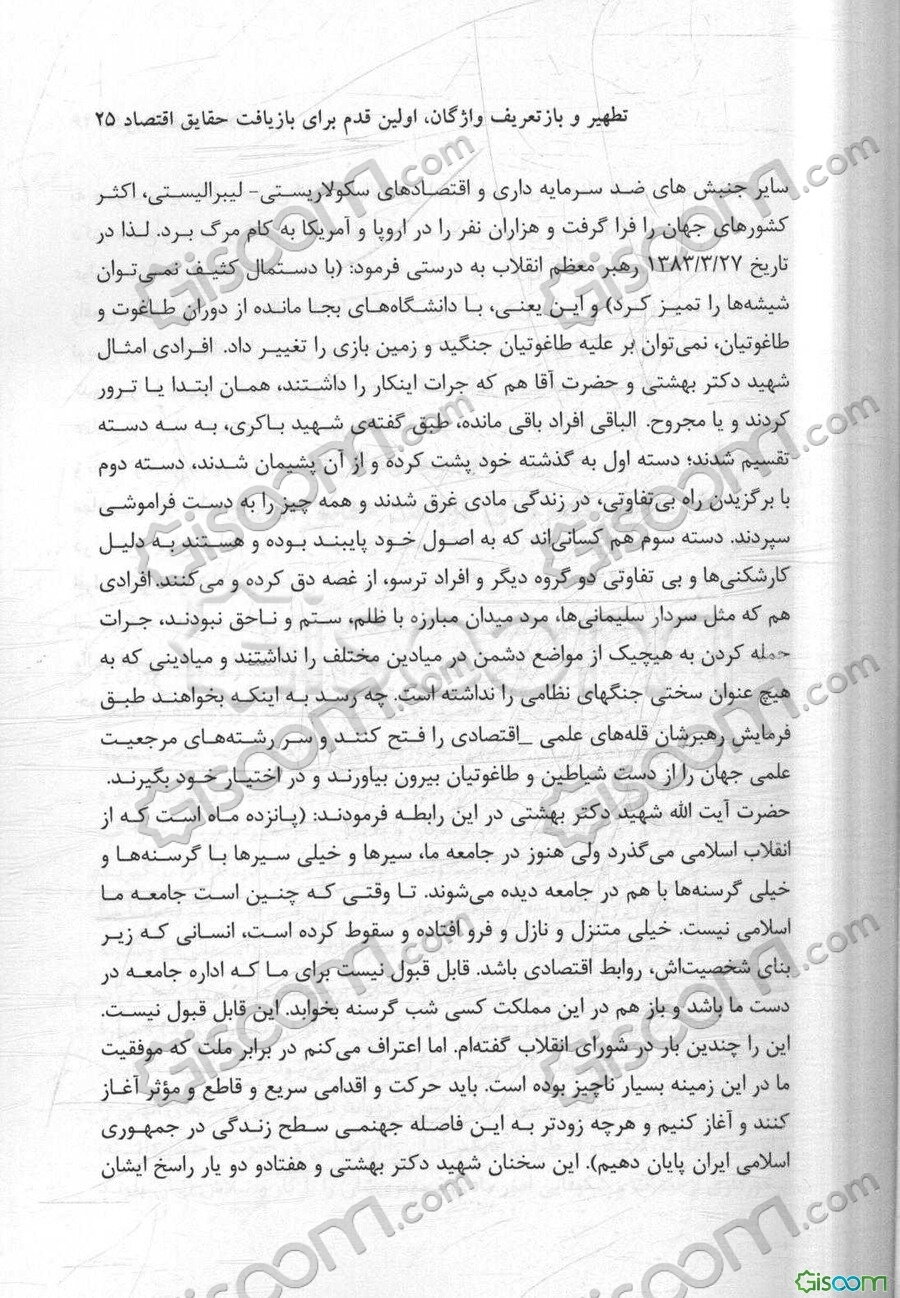 تطهیر و بازتعریف واژگان، اولین قدم برای بازیافت حقایق اقتصاد ۲۵
سایر جنبش های ضد سرمایه داری و اقتصادهای سکولاریستی- لیبرالیستی، اکثر
کشورهای جهان را فرا گرفت و هزاران نفر را در اروپا و آمریکا به کام مرگ برد. لذا در
تاریخ ۱۳۸۳/۳/۲۷ رهبر معظم انقلاب به درستی فرمود: (با دستمال کثیف نمی‌توان
شیشه‌ها را تمیز کرد) و این یعنی، با دانشگاه‌های بجا مانده از دوران طاغوت و
طاغوتیان، نمی‌توان بر علیه طاغوتیان جنگید و زمین بازی را تغییر داد. افرادی امثال
شهید دکتر بهشتی و حضرت آقا هم که جرات اینکار را داشتند، همان ابتدا یا ترور
کردند و یا مجروح. الباقی افراد باقی مانده، طبق گفته‌ی شهید باکری، به سه دسته
تقسیم شدند؛ دسته اول به گذشته خود پشت کرده و از آن پشیمان شدند، دسته دوم
با برگزیدن راه بی‌تفاوتی، در زندگی مادی غرق شدند و همه چیز را به دست فراموشی
سپردند. دسته سوم هم کسانی‌اند که به اصول خود پایبند بوده و هستند به دلیل
کارشکنی‌ها و بی تفاوتی دو گروه دیگر و افراد ترسو، از غصه دق کرده و می‌کنند. افرادی
هم که مثل سردار سلیمانی‌ها، مرد میدان مبارزه با ظلم، ستم و ناحق نبودند، جرات
حمله کردن به هیچیک از مواضع دشمن در میادین مختلف را نداشتند و میادینی که به
هیچ عنوان سختی جنگهای نظامی را نداشته است. چه رسد به اینکه بخواهند طبق
فرمایش رهبرشان قله‌های علمی _اقتصادی را فتح کنند و سر رشته‌های مرجعیت
علمی جهان را از دست شیاطین و طاغوتیان بیرون بیاورند و در اختیار خود بگیرند.
حضرت آیت الله شهید دکتر بهشتی در این رابطه فرمودند: (پانزده ماه است که از
انقلاب اسلامی می‌گذرد ولی هنوز در جامعه ما، سیرها و خیلی سیرها با گرسنه‌ها و
خیلی گرسنه‌ها با هم در جامعه دیده می‌شوند. تا وقتی که چنین است جامعه ما
اسلامی نیست. خیلی متنزل و نازل و فرو افتاده و سقوط کرده است، انسانی که زیر
بنای شخصیت‌اش، روابط اقتصادی باشد. قابل قبول نیست برای ما که اداره جامعه در
دست ما باشد و باز هم در این مملکت کسی شب گرسنه بخوابد. این قابل قبول نیست.
این را چندین بار در شورای انقلاب گفته‌ام. اما اعتراف می‌کنم در برابر ملت که موفقیت
ما در این زمینه بسیار ناچیز بوده است. باید حرکت و اقدامی سریع و قاطع و مؤثر آغاز
کنند و آغاز کنیم و هرچه زودتر به این فاصله جهنمی سطح زندگی در جمهوری
اسلامی ایران پایان دهیم). این سخنان شهید دکتر بهشتی و هفتادو دو یار راسخ ایشان
Gisoom.com
Gisoom.com
Gisoom.com
Gisoom.com
Gisoom.com
Gisoom.com
Gisoom.com
Gisoom.com
Gisoom.com
Gisoom.com
Gisoom